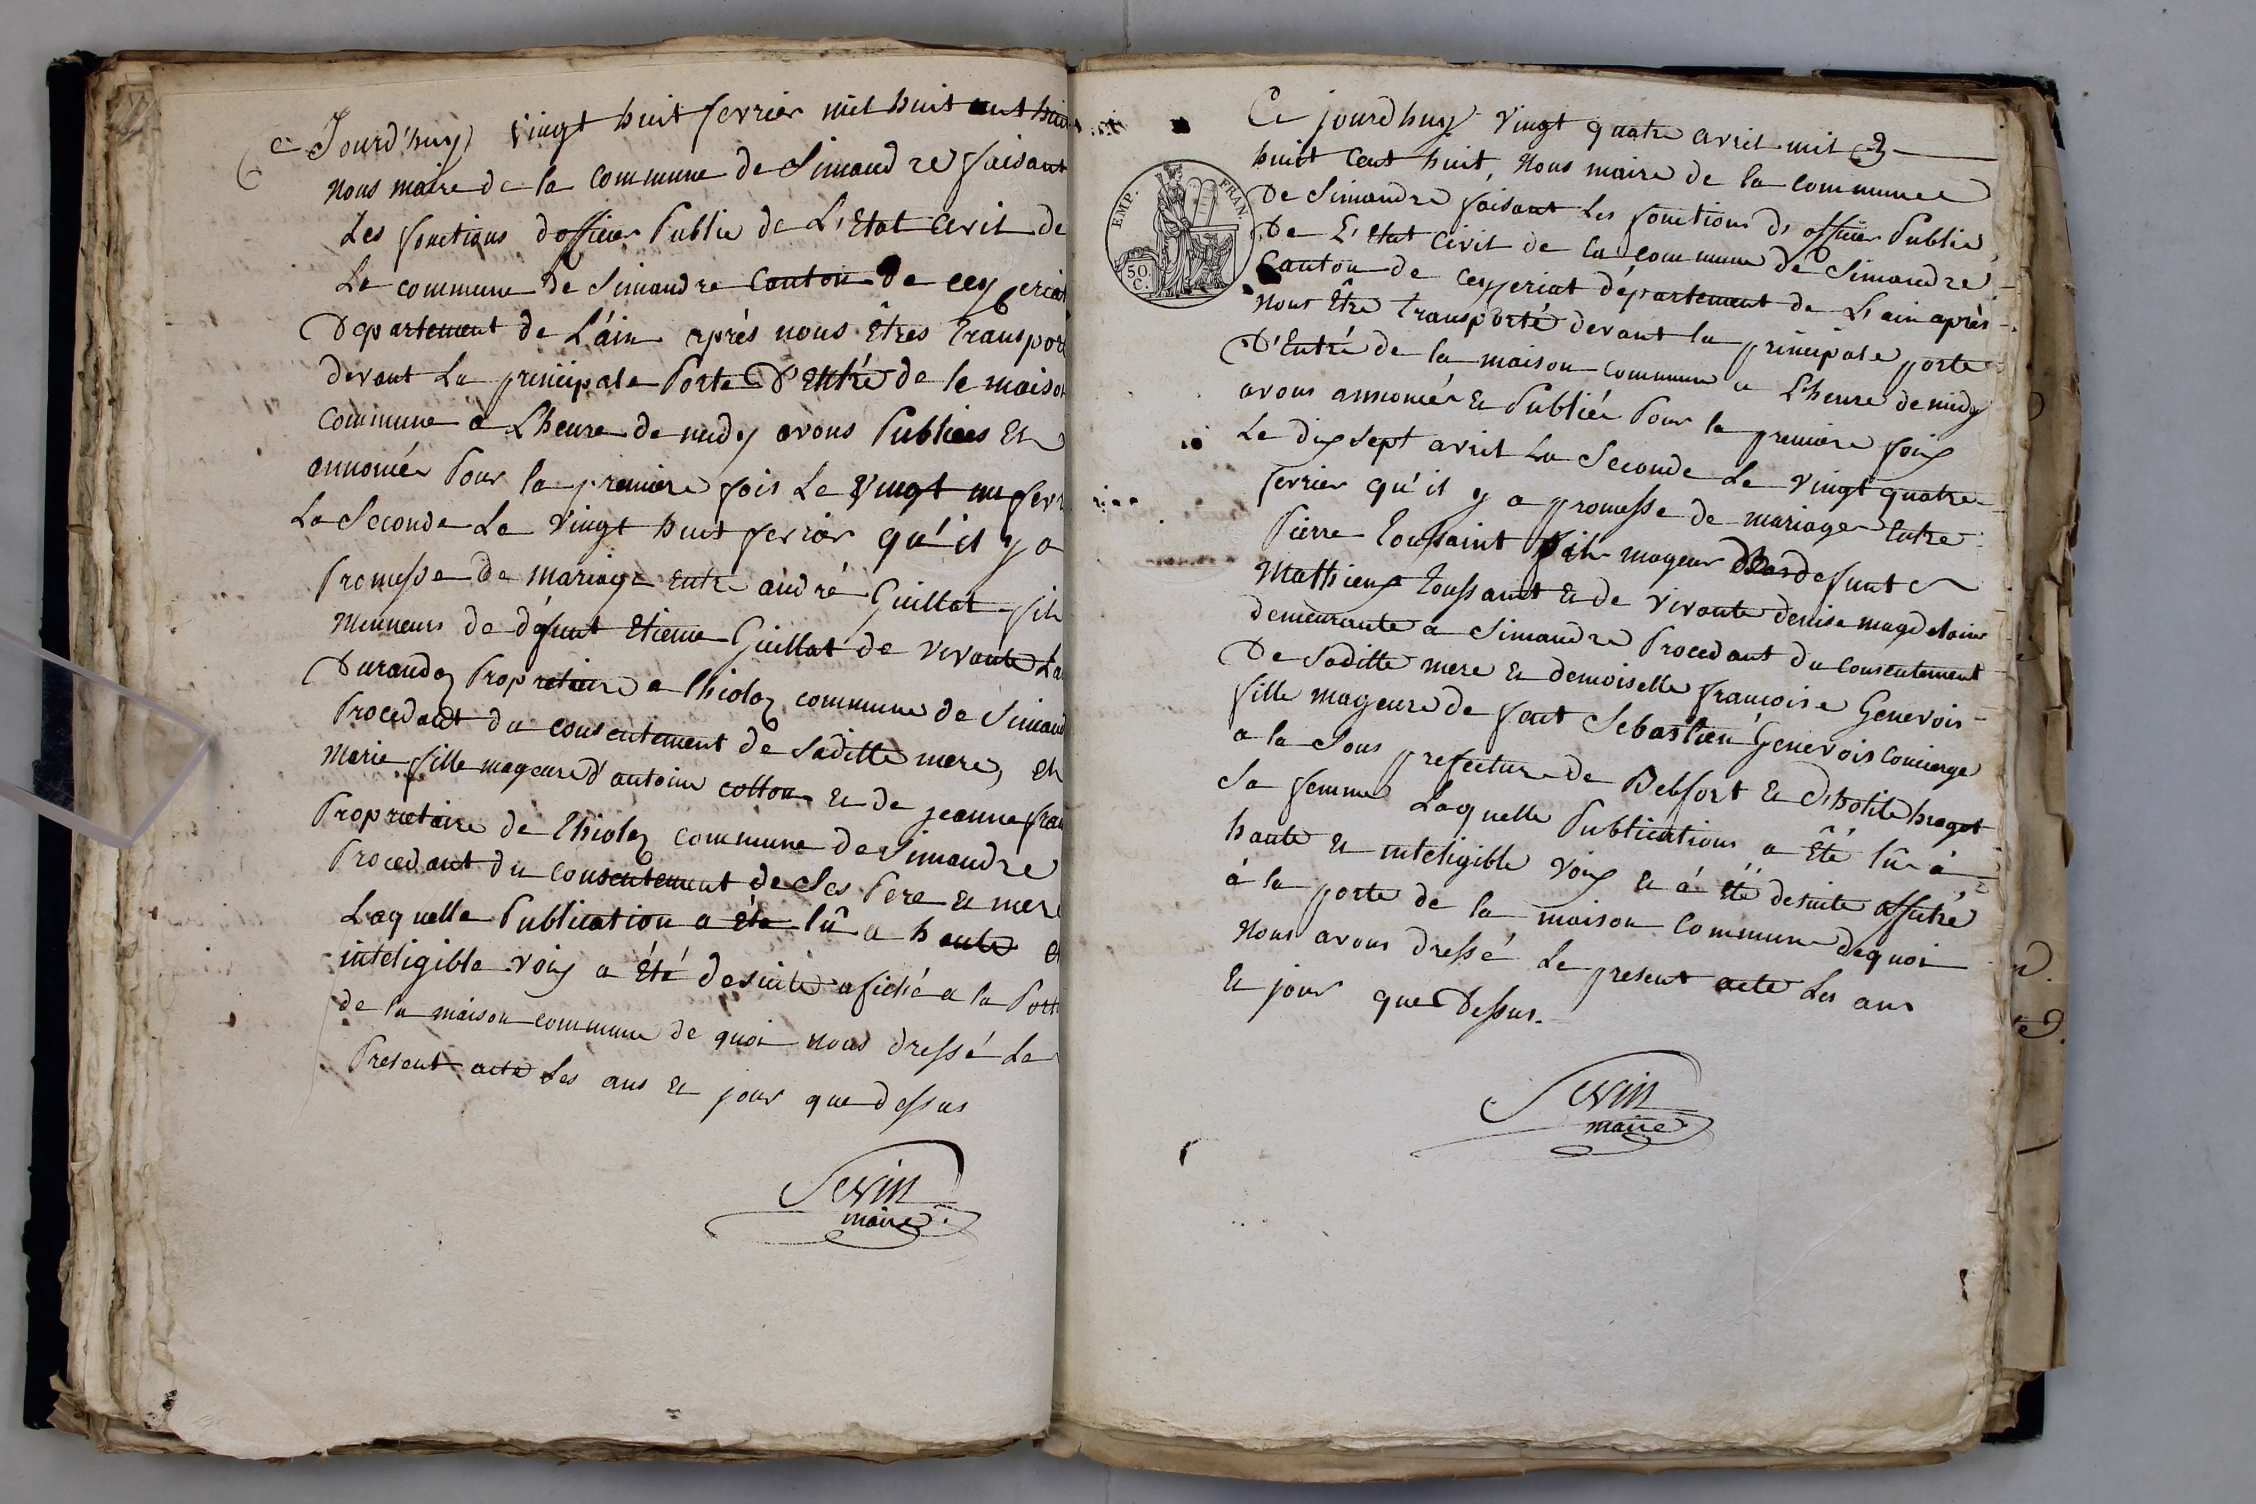 Ce Jourd'huy vingt huit fevrier mil huit cent huit
nous maire de la commune de Simandre faisant
Les fonctions dofficier Public de L'Etat Civil de
La commune de Simandre Canton de ceyzeriat
Departement de L'áin aprés nous Êtres Transpor
devant La principale Porte D'Entré de le maison
commune a Lheure de midy avons Publiées Et
annoncée Pour la premiere fois Le vingt un fevr
La Seconde Le vingt huit fevrier qu'il y a
Promesse de mariage Entre andré Guillot fils
Mineurs de défunt Etiene Guillot de vivante
Durandoz Propriétaire a Thioloz commune de Simand
Procedant du consentement de Saditte mere, Et
Marie fille mageure d'antoine cotton & de jeanne fran
Proprietaire de Thioloz commune de Simandre
Procedant du consentement de Ses Pere & mere
Laquelle Publication a été lû a haute et
inteligible voix a été desuite afiché a la Porte
de la maison commune de quoi nous dressé Le
Present acte Les ans & jour que dessus
Sevin
maire
Ce jourdhuy vingt quatre avril mil
huit cent huit, Nous maire de la commune
De Simandre faisant Les fonctions d'officier Public
De L'Etat Civil de la commune de Simandre
Canton de ceyzeriat département de L'ain après
nous Être transporté devant la principale porte
D'Entré de la maison commune a Lheure de midy
avons annoncée & Publiée Pour la premiere fois
Le dix sept avril La Seconde Le vingt quatre
fevrier qu'il y a promesse de mariage Entre
Pierre Toussaint fils mageur defunt
Mathieux Toussaint & de vivante denise magdelaine
demeurante a Simandre Procedant du consentement
De Saditte mere & demoiselle françoise Genevois
fille mageure de feut Sebastien Genevois Concierge
a la Sous prefecture de Belfort &
Sa femme Laquelle Publications a Été lû à
haute & inteligible voix & á été desuite affiché
à la porte de la maison commune dequoi
Nous avons dressé Le present acte Les ans
& jour que Dessus.
Sevin
maire
EMP. FRAN.
50.
C.